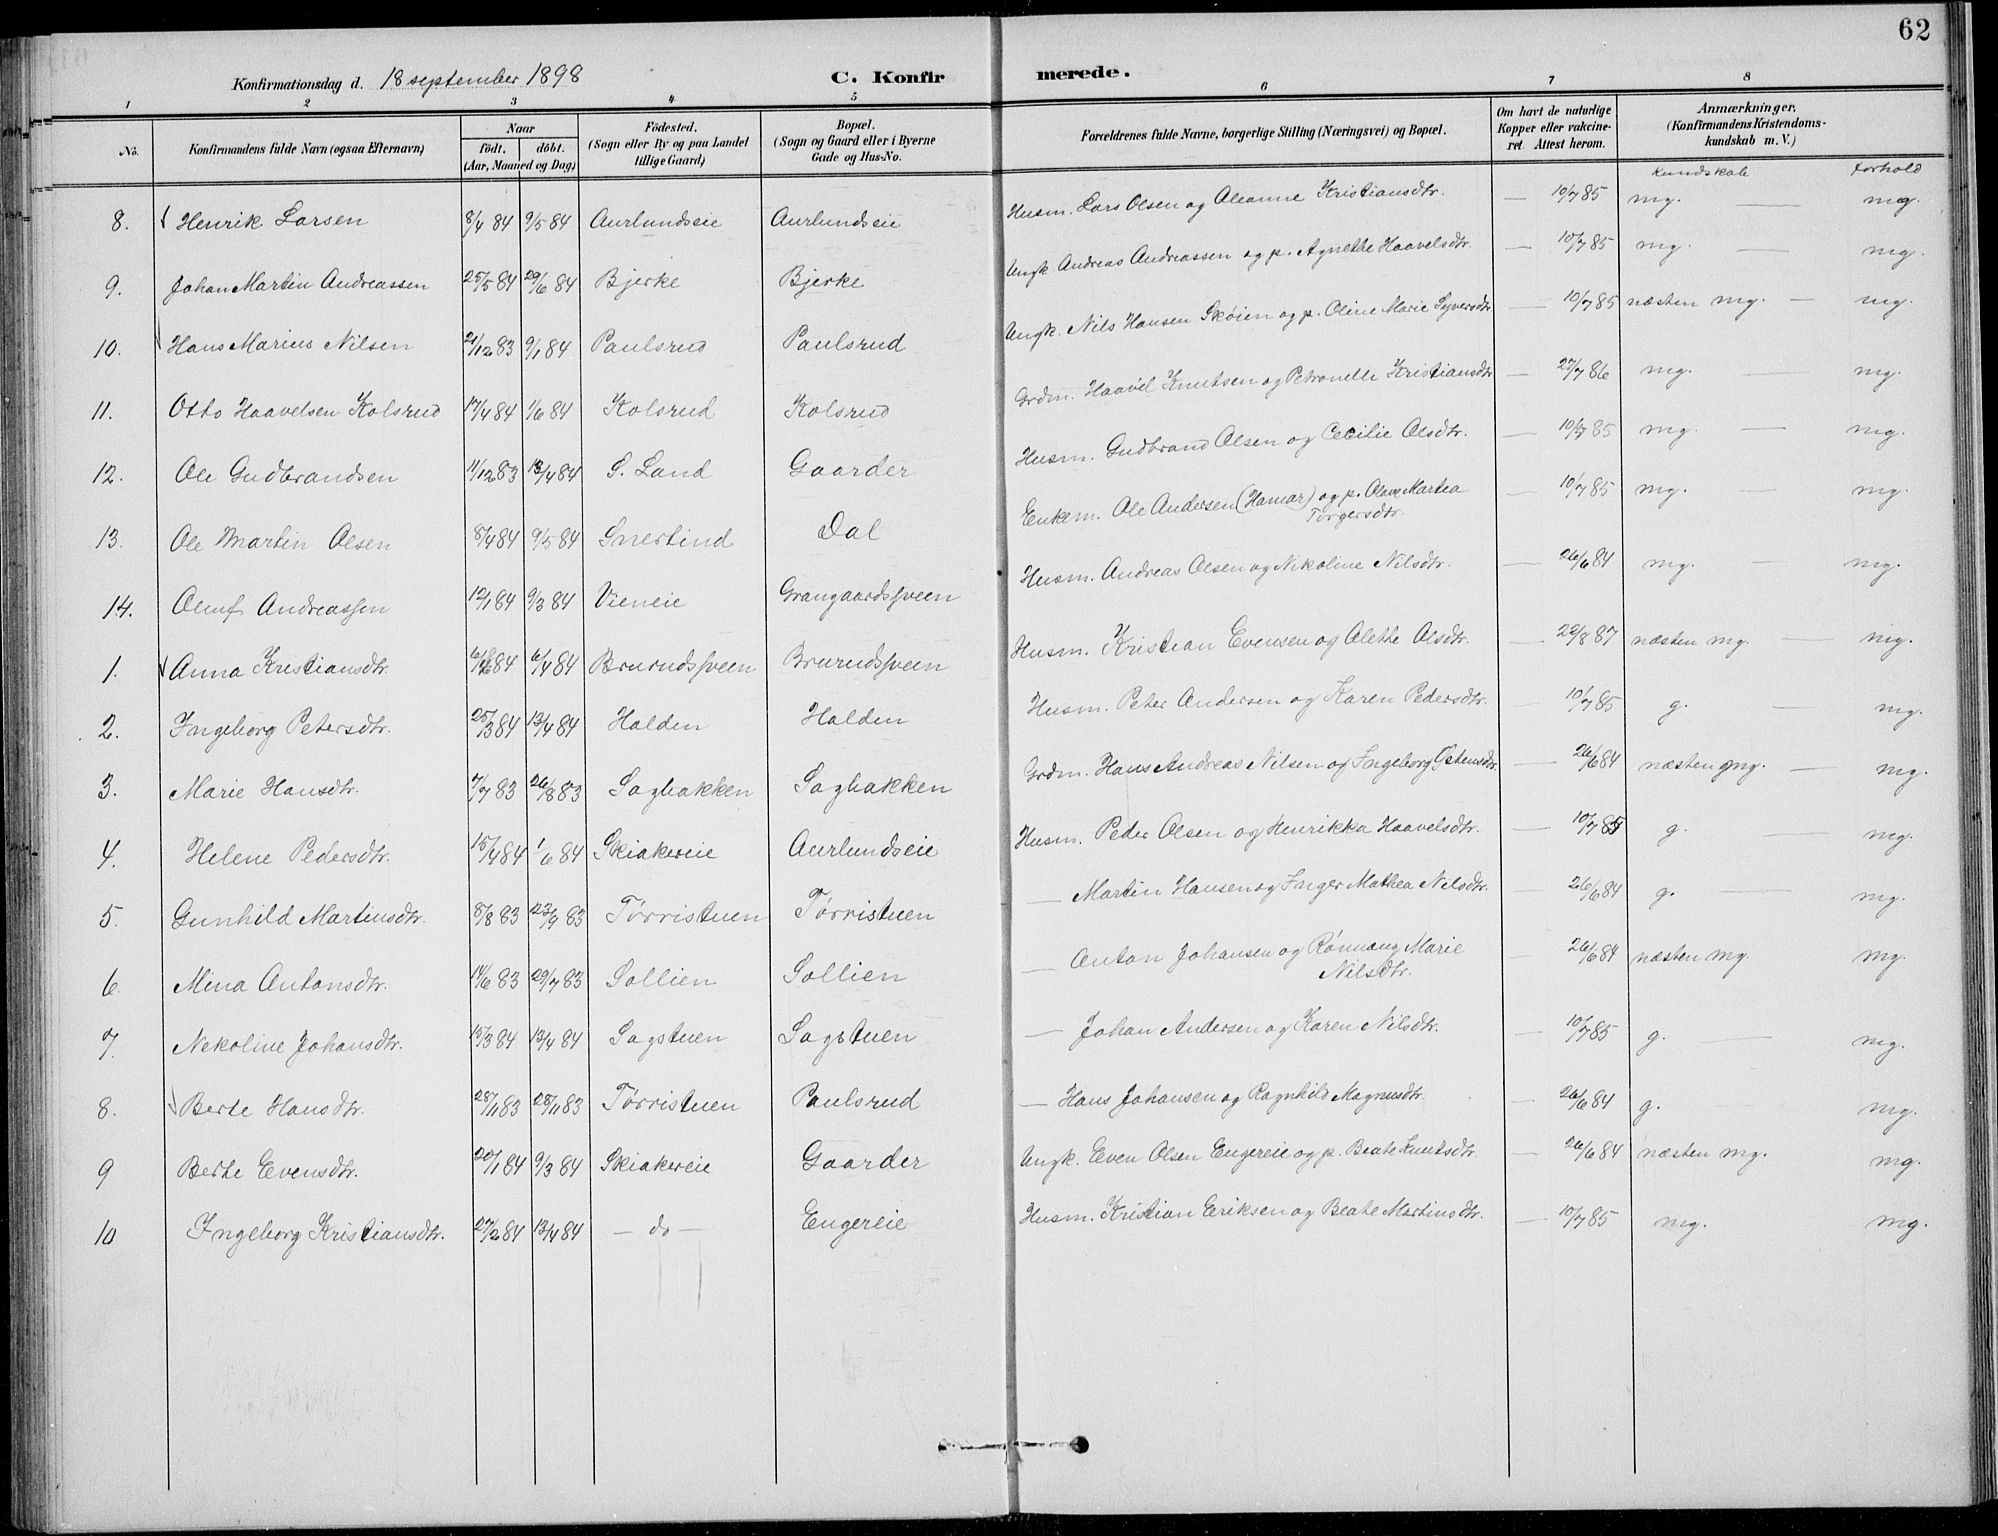 62
Konfirmationsdag d. 18 september 1898 C. Konfir merede.
1 2 3 4 5 6 7 8
No. Konfirmandens fulde Navn (ogsaa Efternavn) Naar født. døbt. (Aar, Maaned og Dag) Fødested. (Sogn eller By og paa Landet tillige Gaard) Bopæl. (Sogn og Gaard eller i Byerne Gade og Hus-No. Forældrenes fulde Navne, borgerlige Stilling (Næringsvei) og Bopæl. Om havt de naturlige Kopper eller vakcineret. Attest herom. Anmærkninger. (Konfirmandens Kristendomskundskab m. V.)
kundskab forhold
8. Henrik Larsen 8/4 84 9/5 84 Aurlundseie Aurlundseie Husm. Lars Olsen og Aleanne Kristiansdtr. — 10/7 85 mg. — mg.
9. Johan Martin Andreassen 25/5 84 29/6 84 Bjerke Bjerke Ungk. Andreas Andreassen og p. Agnethe Haavelsdtr. — 10/7 85 mg. — mg.
10. Hans Marius Nilsen 21/12 83 9/1 84 Paulsrud Paulsrud Ungk. Nils Hansen Skøien og p. Oline Marie Syversdtr — 10/7 85 næsten mg. — mg.
11. Otto Haavelsen Kolsrud 17/4 84 1/6 84 Kolsrud Kolsrud Grdm. Haavel Knutsen og Petronelle Kristiansdtr — 27/7 86 mg. — mg.
12. Ole Gudbrandsen 11/12 83 13/4 84 S. Land Gaarder Husm. Gudbrand Olsen og Cecilie Olsdtr. — 10/7 85 mg. — mg.
13. Ole Martin Olsen 8/4 84 9/5 84 Snertind Dal Enkem. Ole Andersen (Hamar) og p. Olave Martea Torgersdtr. — 10/7 85 mg. — mg.
14. Oluf Andreassen 12/1 84 9/3 84 Vieneie Grangaardssveen Husm. Andreas Olsen og Nikoline Nilsdtr. — 26/6 84 mg. — mg.
1. Anna Kristiansdtr. 84 6/4 84 Brurudssveen Brurudssveen Husm. Kristian Evensen og Alethe Olsdtr. — 22/8 87 næsten mg. — mg.
2. Ingeborg Petersdtr. 25/3 84 13/4 84 Halden Halden Husm. Peter Andersen og Karen Pedersdtr. — 10/7 85 g. — mg.
3. Marie Hansdtr. 7/7 83 26/8 83 Sagbakken Sagbakken Grdm. Hans Andreas Nilsen og Ingeborg — 26/6 84 næsten mg. — mg.
4. Helene Pedersdtr. 15/4 84 1/6 84 Skiakereie Aurlundseie Husm. Peder Olsen og Henrikka Haavelsdtr. — 10/7 85 g. — mg.
5. Gunhild Martinsdtr. 8/8 83 23/9 83 Tørristuen Tørristuen — Martin Hansen og Inger Mathea Nilsdtr. — 26/6 84 g. — mg.
6. Mina Antonsdtr. 14/6 83 29/7 83 Sollien Sollien — Anton Johansen og Rønnaug Marie Nilsdtr. — 26/6 84 næsten mg. mg.
7. Nekoline Johansdtr. 15/3 84 13/4 84 Sagstuen Sagstuen — Johan Andersen og Karen Nilsdtr. — 10/7 85 g. — mg.
8. Berte Hansdtr. 28/11 83 28/11 83 Tørristuen Paulsrud — Hans Johansen og Ragnhild Magnusdtr. — 26/6 84 g. mg.
9 Berte Evensdtr. 20/1 84 9/3 84 Skiakereie Gaarder Ungk. Even Olsen Engereie og p. Beate Knutsdtr. — 26/6 84 næsten mg. mg.
10 Ingeborg Kristiansdtr. 27/2 84 13/4 84 — do — Engereie Husm. Kristian Eriksen og Beate Martinsdtr. — 10/7 85 mg. mg.